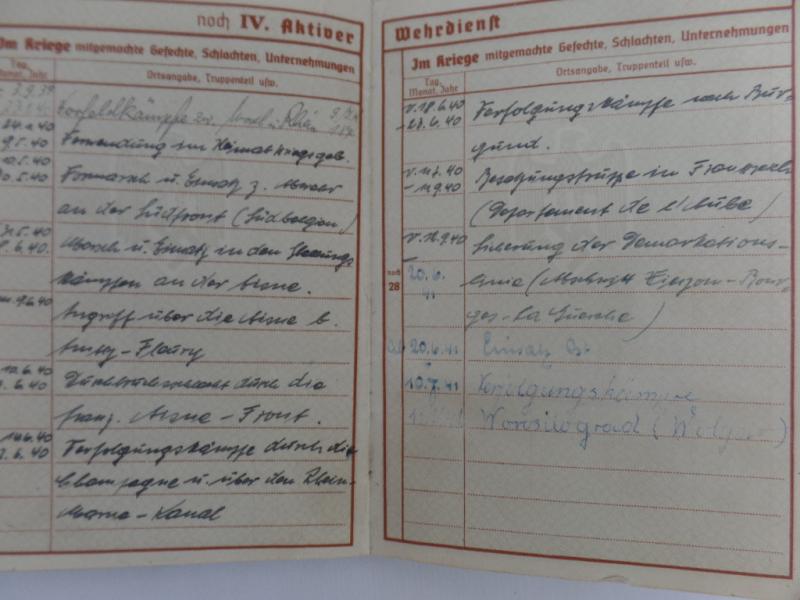 noch IV. Aktiver
Im Kriege mitgemachte Gefechte, Schlachten, Unternehmungen
Tag, Monat, Jahr
Ortsangabe, Truppenteil usw.
3.9.39
Vorfeldkämpfe zw. Mosel u. Rhein
Verwendung im Heimatkriegsgeb.
9.5.40
10.5.40 Vormarsch u. Einsatz z.
an der Südfront (Südbelgien)
Marsch u. Einsatz in den
kämpfen an der Aisne.
9.6.40 Angriff über die Aisne b.
Fleury
10.6.40 Durchbruchsschlacht durch die
franz. Aisne-Front.
Verfolgungskämpfe durch die
Champagne u. über den Rhein-
Marne-Kanal
Wehrdienst
Im Kriege mitgemachte Gefechte, Schlachten, Unternehmungen
Tag, Monat, Jahr
Ortsangabe, Truppenteil usw.
v. 18.6.40 Verfolgungskämpfe nach Bur-
gund.
Besatzungstruppe in Frankreich
(Departement de l'Aube)
Sicherung der Demarkations-
noch 28
20.6.41
linie (Abschnitt Vierzon-Bour-
ges-La Guerche)
20.6.41 Einsatz Ost
10.7.41 Verfolgungskämpfe
Woroschilograd